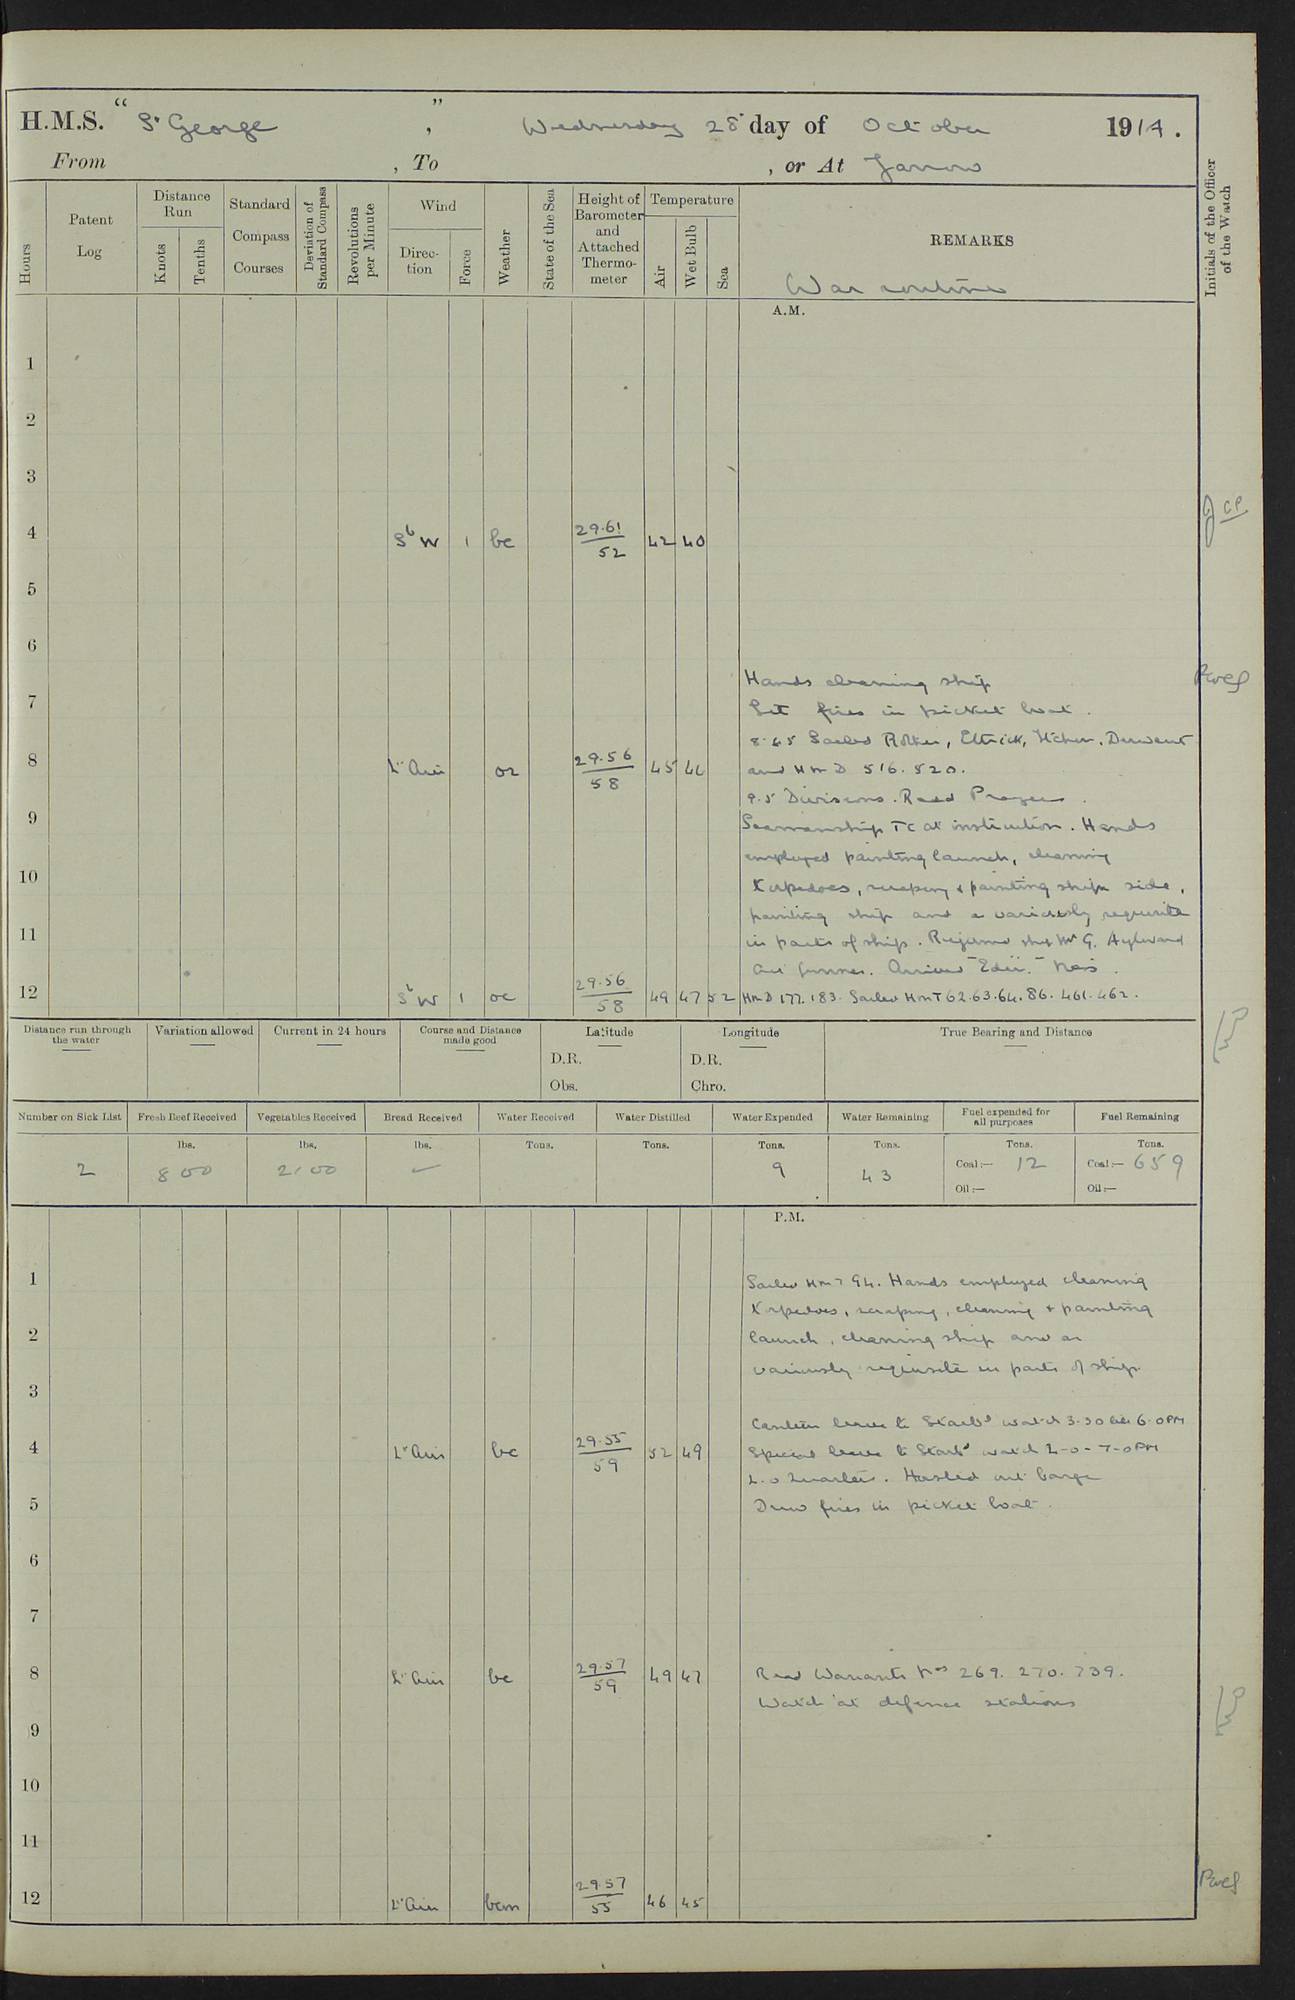 H.M.S. "St George", Wednesday 28th day of October 1914.
From , To , or At Jarrow
Hours
Patent Log
Distance Run
Knots
Tenths
Standard Compass Courses
Deviation of Standard Compass
Revolutions per Minute
Wind
Direction
Force
Weather
State of the Sea
Height of Barometer and Attached Thermometer
Temperature
Air
Wet Bulb
Sea
REMARKS
War routine
Initials of the Officer of the Watch
A.M.
1
2
3
4 SbW 1 bc 29.61 52 42 40
5
6
Hands cleaning ship
7
Lit fires in picket boat.
8.45 Sailed Rother, Ettrick, Itchen, Derwent
8 Lt Airs 29.56 58 45 44
and HMD 516. 520.
9.5 Divisions. Read Prayers.
9
Seamanship TC at instruction. Hands
employed painting launch, cleaning
10
torpedoes, scraping & painting ships side,
painting ship and as variously requisite
11
in parts of ship. Rejoined ship Mr G. Aylward
act gunner. Arrived
12 SbW 1 oc 29.56 58 49 47 52
HMD 177. 183. Sailed HMT 62. 63. 64. 86. 461. 462.
Distance run through the water
Variation allowed
Current in 24 hours
Course and Distance made good
Latitude
D.R.
Obs.
Longitude
D.R.
Chro.
True Bearing and Distance
Number on Sick List
Fresh Beef Received
Vegetables Received
Bread Received
Water Received
Water Distilled
Water Expended
Water Remaining
Fuel expended for all purposes
Fuel Remaining
lbs. lbs. lbs. Tons. Tons. Tons. Tons. Tons. Tons.
2 800 2100 9 43 Coal:— 12 Coal:— 659
Oil:— Oil:—
P.M.
1
Sailed HMT 94. Hands employed cleaning
torpedoes, scraping, cleaning & painting
2
launch, cleaning ship and as
variously requisite in parts of ship.
3
Canteen leave to Starbd watch 3.30 till 6.0PM
4 Lt Airs bc 29.55 59 52 49
Special leave to Starbd watch 4-0-7-0PM
4.0 Quarters. Hoisted out barge
5
Drew fires in picket boat.
6
7
8 Lt Airs bc 29.57 59 49 47
Read Warrants Nos 269. 270. 739.
Watch at defence stations
9
10
11
12 Lt Airs bcm 29.57 55 46 45